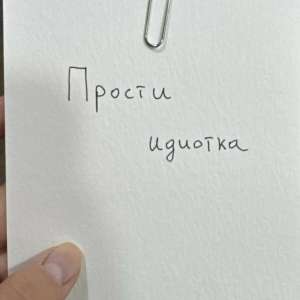 Прости
идиотка